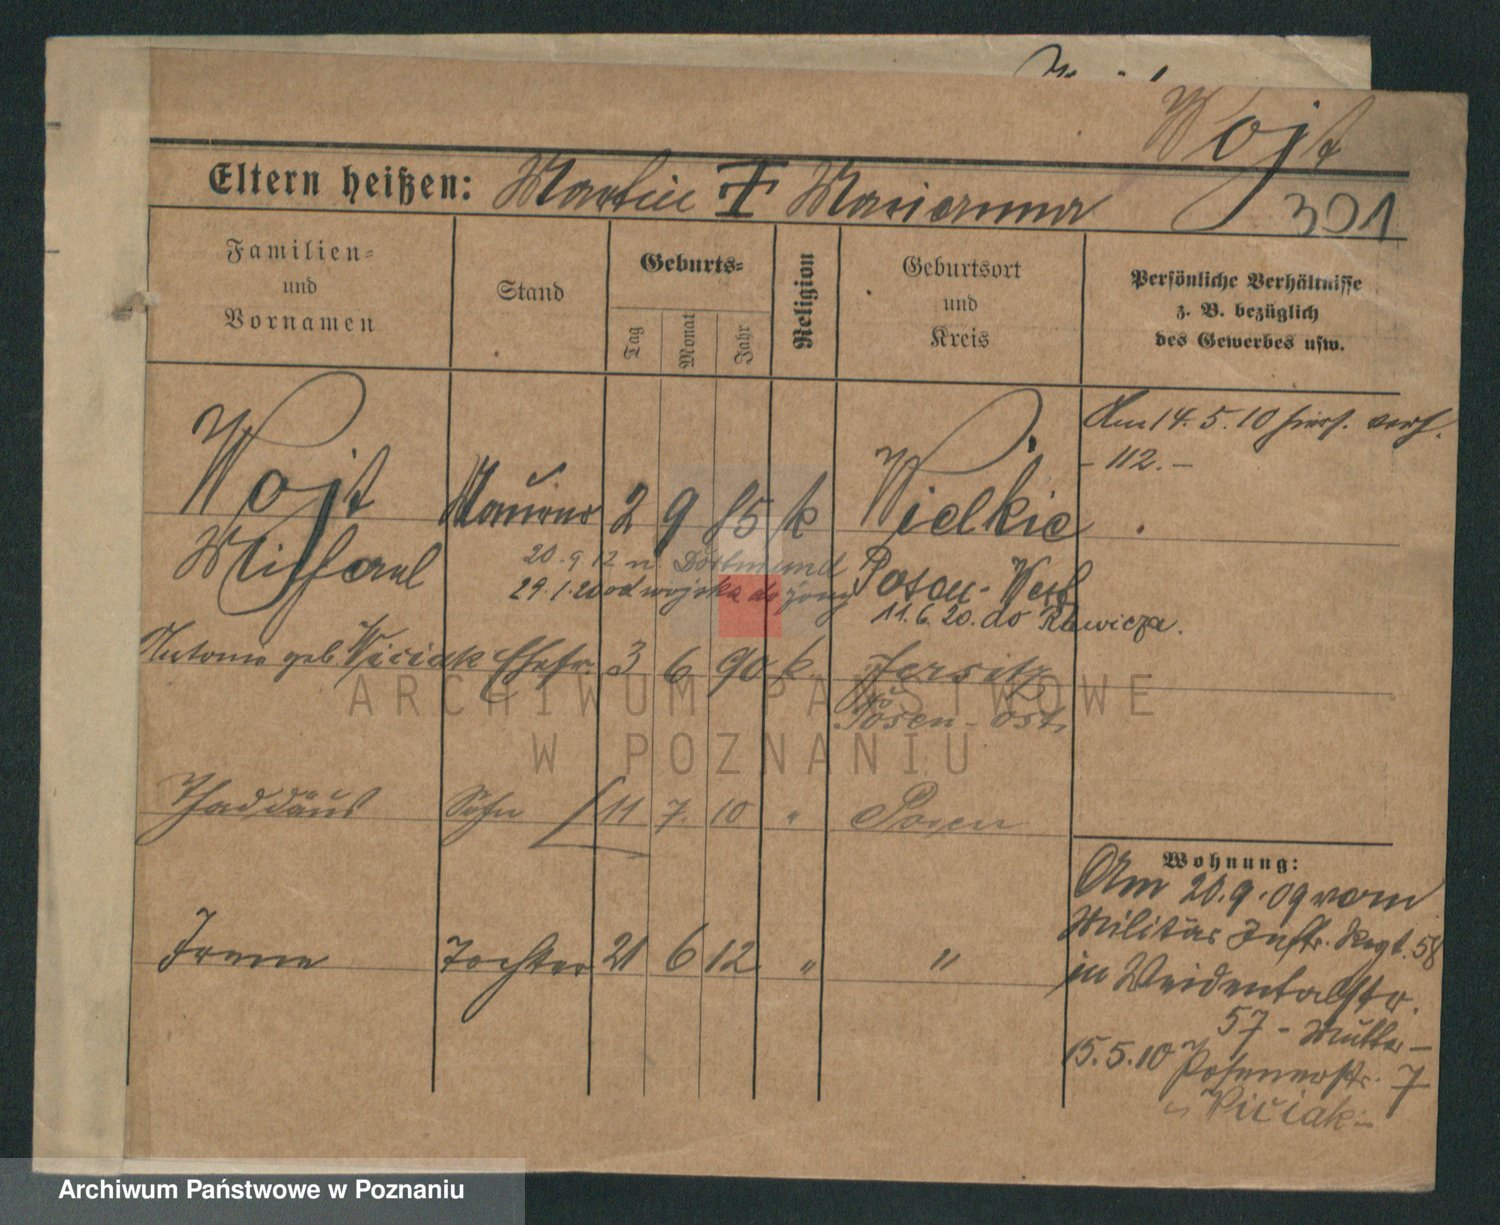 Wojt
Eltern heißen: Martin † Marianna
301
Familien=
und
Vornamen
Stand
Geburts=
Tag
Monat
Jahr
Religion
Geburtsort
und
Kreis
Persönliche Verhältnisse
z. B. bezüglich
des Gewerbes usw.
Am 14.5.10 hiers. verh.
- 112. -
Wojt Maurer 2 9 85 k Wielkie
Michael
20.9.12 n. Dortmund Posen-West
29.1.20 od wojska do żony 11.6.20. do Rawicza.
Antonie geb. Wiciak Ehefr. 3 6 90 k. Jersitz
Posen-Ost.
Thaddäus Sohn 11 7. 10 " Posen
Irene Tochter 21 6 12. " "
Wohnung:
Am 20.9.09 vom
Militär Inftr. Regt. 58
in Weidentalstr.
57 - Mutter -
15.5.10 Posenerstr. 7
Wiciak -
ARCHIWUM PAŃSTWOWE
W POZNANIU
Archiwum Państwowe w Poznaniu